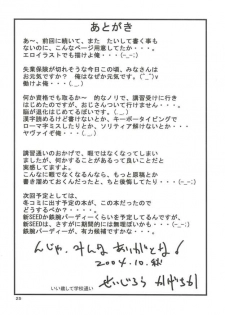 あとがき
あ～、前回に続いて、また たいして書く事も
ないのに、こんなページ用意してたか・・・。
エロイラストでも描けよ俺・・・(-_-;)
失業保険が切れそうな今日この頃、みなさんは
お元気ですか？ 俺はなぜか元気です。(^_^)v
働けよ俺・・・(._.)
何か資格でも取るか～ 的なノリで、講習受けに行き
はじめたのですが、おじさんついて行けません・・・。
脳が退化はじめてるっぽい・・・(._.)
漢字読めるけど書けないとか、キーボータイピングで
ローマ字ミスしたりとか、ソリティア解けないとか・・・
ヤヴァイぞ俺・・・(._.)
講習通いのおかげで、暇ではなくなってしまい
ましたが、何かすることがあるって良いことだと
実感してみたり・・・。
こんなに暇でなくなるなら、もっと原稿とか
書き溜めておくんだったと、ちと後悔してたり・・・(-_-;)
次回予定としては、
冬コミに出す予定の本が、この本だったので
どうするべか・・・。
新SEEDか鉄腕バーディーくらいを予定してるんですが、
新SEEDは、さすがに期間的には無理ぽいから・・・(-_-;)
鉄腕バーディーが、有力候補ですかな・・・。
んじゃ、みんなありがとな！
2004.10.
いい歳して学校通い